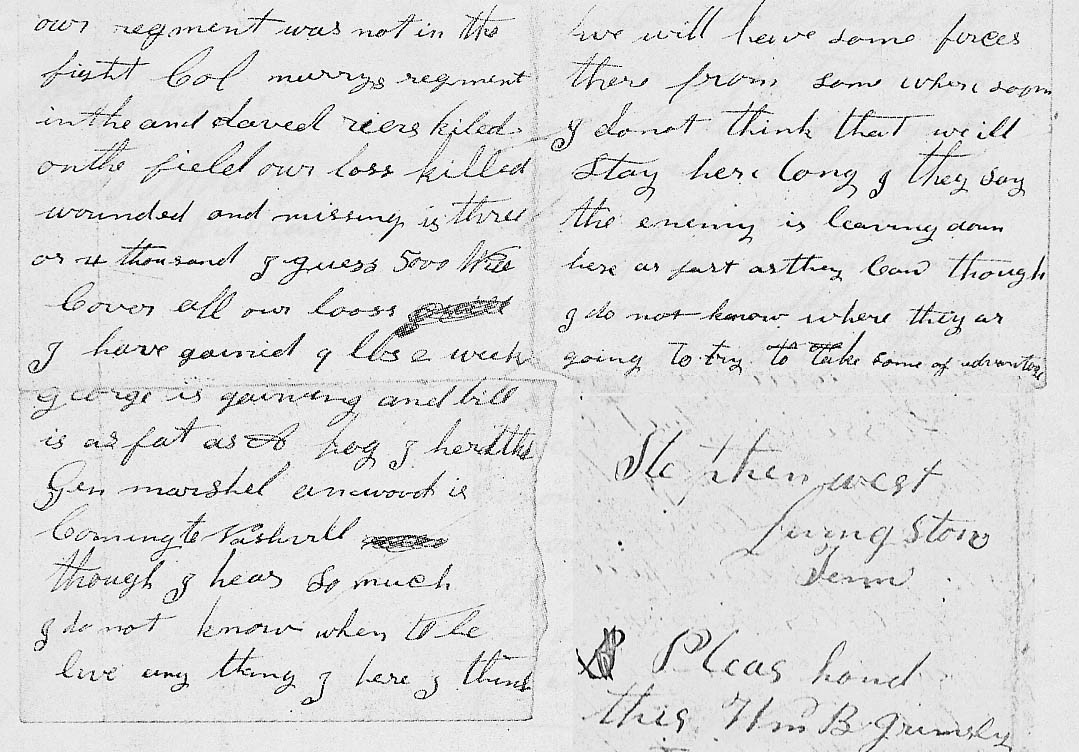 our regment was not in the
fight Col murrys regment
in the and daved rers kiled
on the field our loss killed
wounded and missing is three
or 4 thousand J guess 5000 Will
Cover all our looss
J have gained 9 lbs a week
george is gaining and bill
is as fat as A hog J herd tha
Gen marshel is
Coming to Nashvill
though J hear So much
J do not know when to be
live any thing J here J think
we will have some forces
there from som where soon
J do not think that we ill
Stay here Long J they say
the enemy is leaving down
here as fast as they Can though
J do not know where they ar
going To try to take some of advantage
Stephen west
Livingston
Tenn
Pleas hand
this Wm B Grimsly